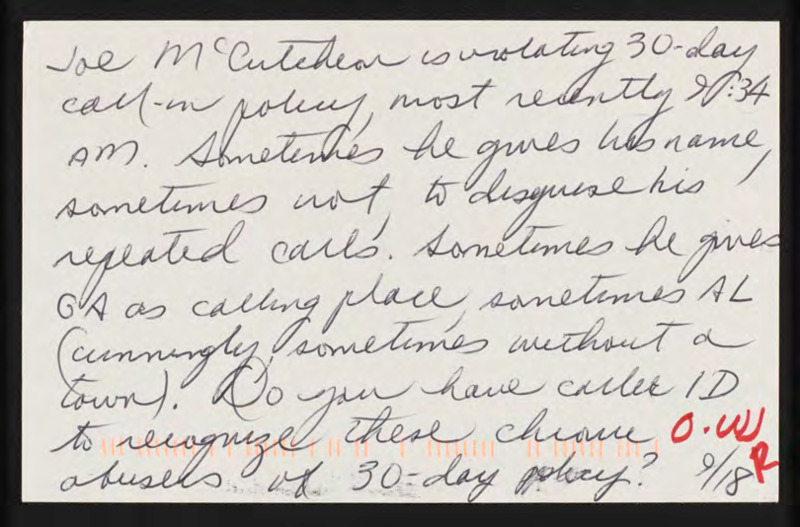 Joe McCutchear is violating 30-day
call-in policy, most recently 9/ :34
AM. Sometimes he gives his name,
sometimes not, to disguise his
repeated calls. Sometimes he gives
GA as calling place, sometimes AL
(cunningly, sometimes without a
town). Do you have caller ID
to recognize these chronic O.W
abusers of 30-day policy? 9/18 R